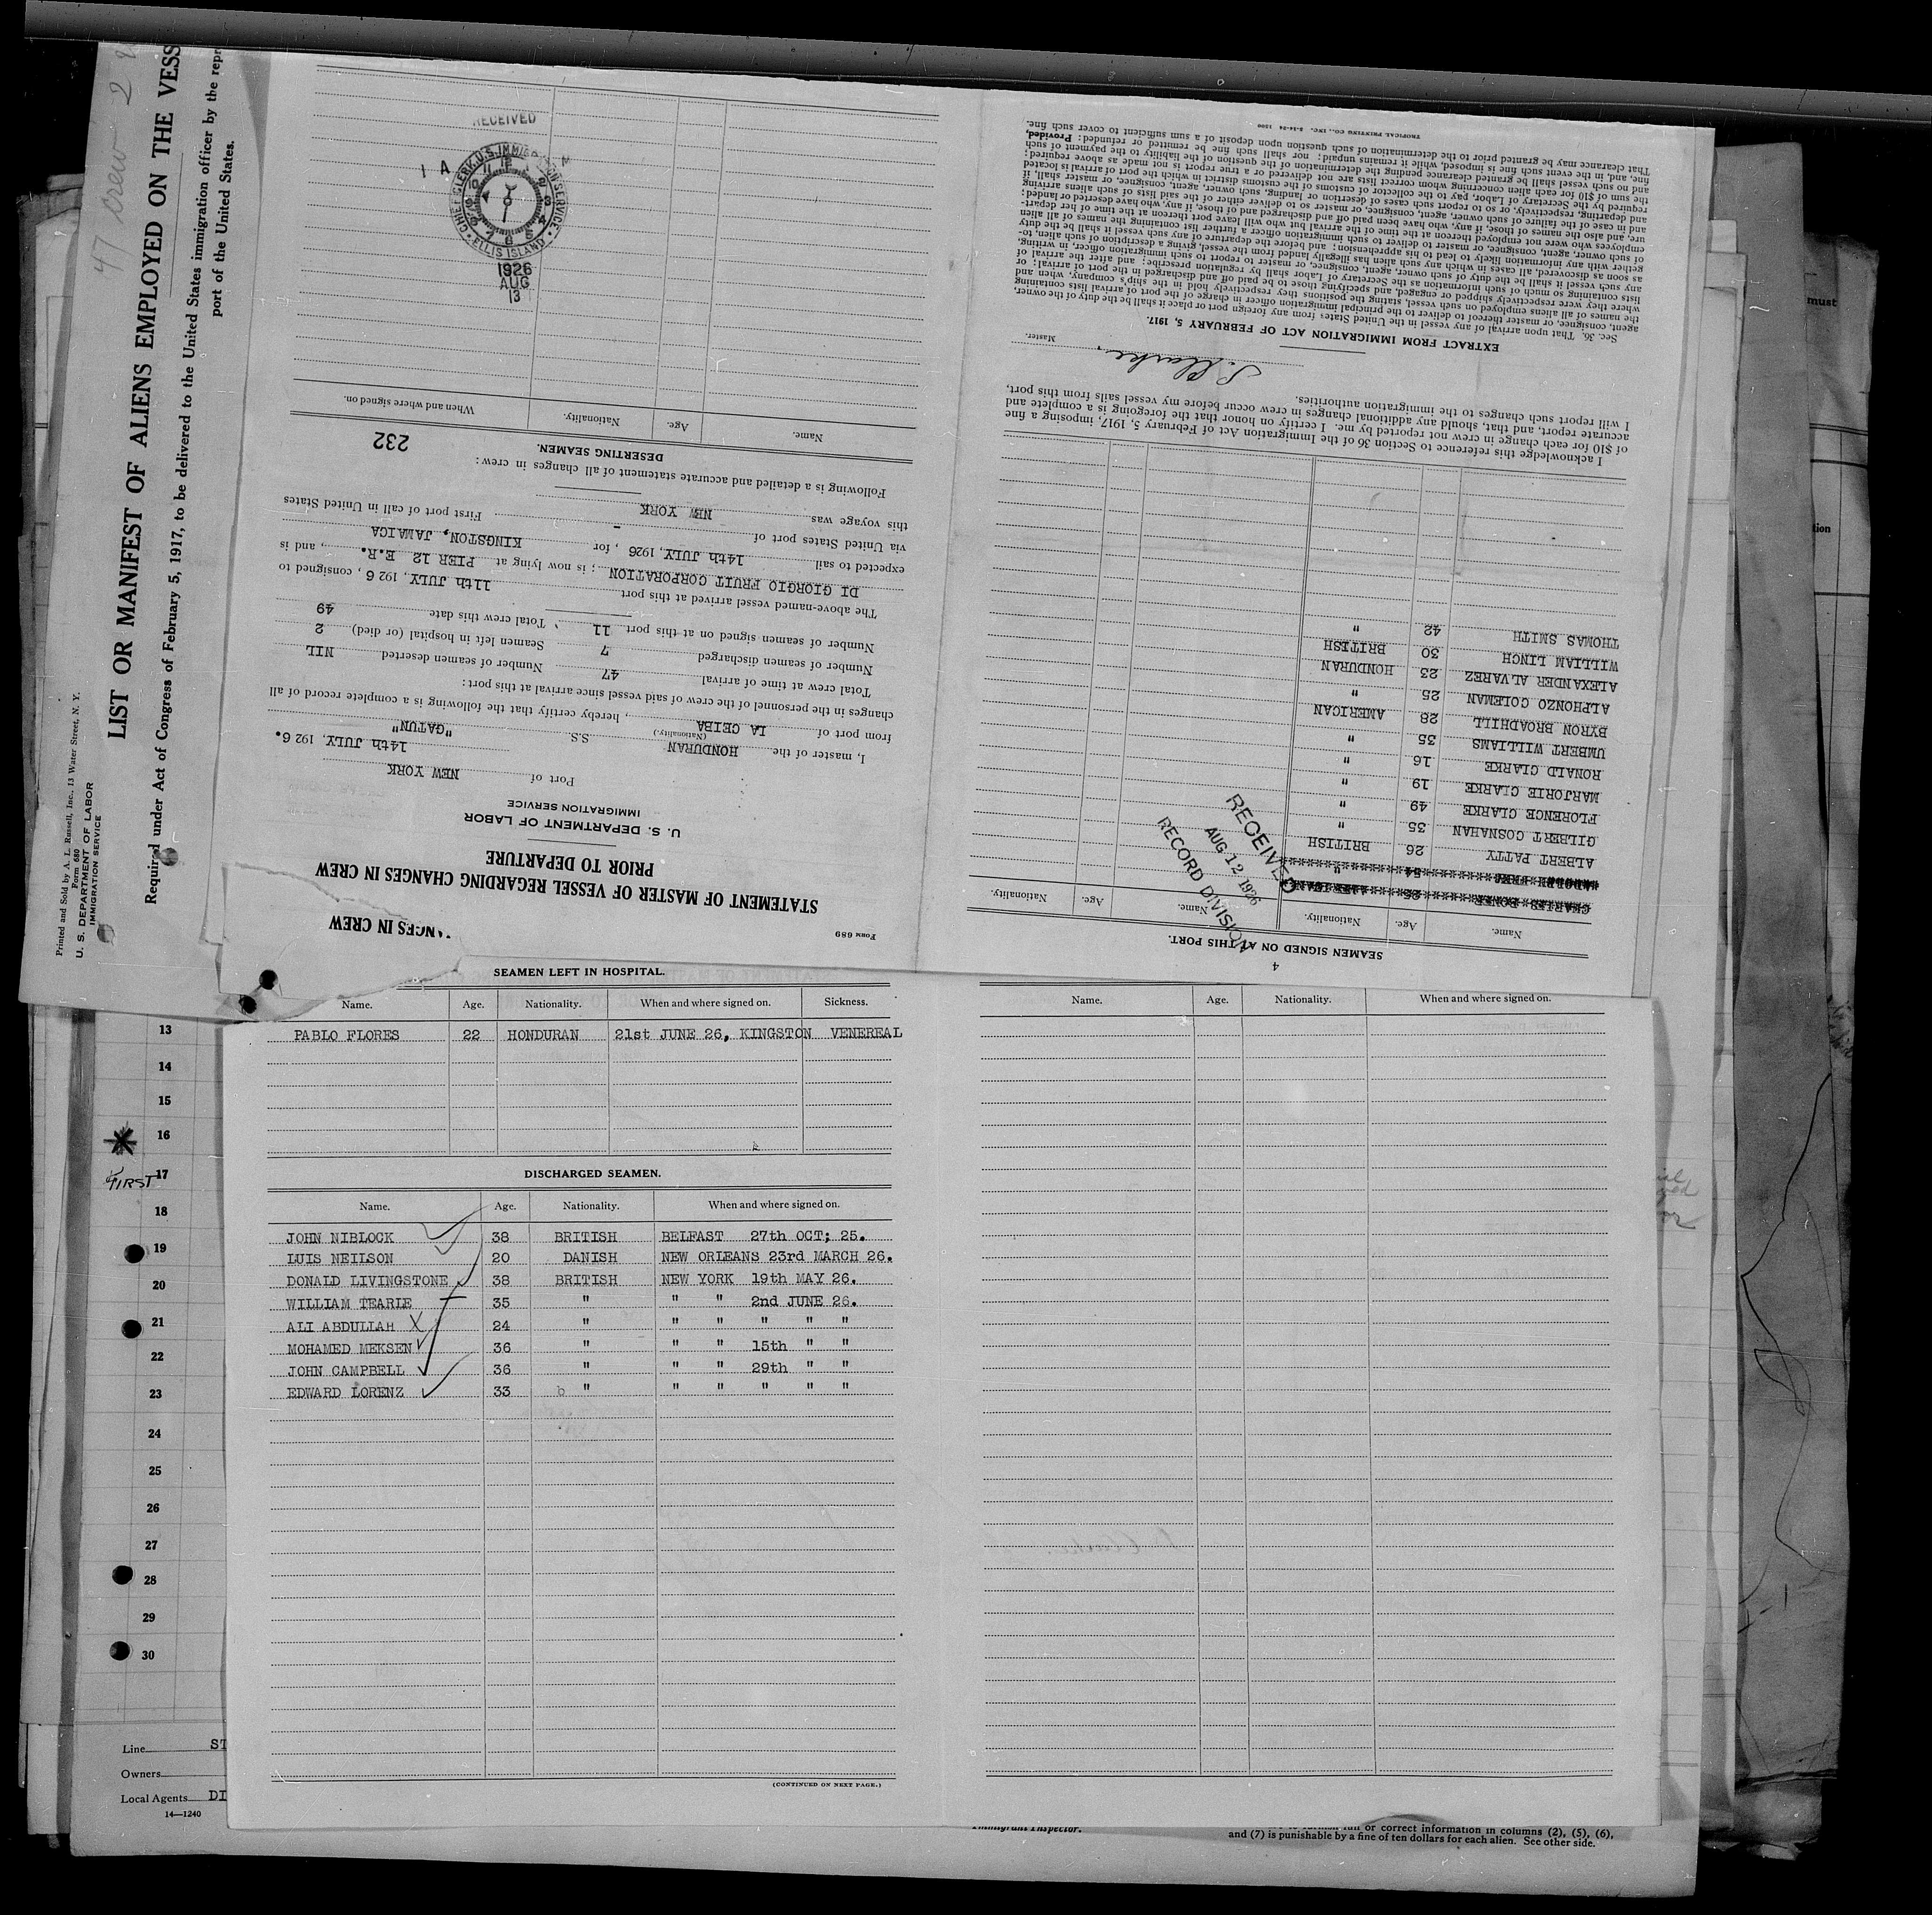 47 crew 2
LIST OR MANIFEST OF ALIENS EMPLOYED ON THE VESS
Required under Act of Congress of February 5, 1917, to be delivered to the United States immigration officer by the repr
port of the United States.
Printed and Sold by A. L. Russell, Inc., 13 Water Street, N. Y.
Form 680
U. S. DEPARTMENT OF LABOR
IMMIGRATION SERVICE
ANGES IN CREW
Form 689
STATEMENT OF MASTER OF VESSEL REGARDING CHANGES IN CREW
PRIOR TO DEPARTURE
U. S. DEPARTMENT OF LABOR
IMMIGRATION SERVICE
Port of NEW YORK
14th JULY, 192 6.
I, master of the HONDURAN S.S. "GATUN"
(Nationality)
from port of LA CEIBA, hereby certify that the following is a complete record of all
changes in the personnel of the crew of said vessel since arrival at this port:
Total crew at time of arrival 47 Number of seamen deserted NIL
Number of seamen discharged 7 Seamen left in hospital (or died) 2
Number of seamen signed on at this port 11 Total crew this date 49
The above-named vessel arrived at this port 11th JULY, 192 6, consigned to
DI GIORGIO FRUIT CORPORATION; is now lying at PIER 12 E.R., and is
expected to sail 14th JULY, 1926, for KINGSTON, JAMAICA
via United States port of - First port of call in United States
this voyage was NEW YORK
Following is a detailed and accurate statement of all changes in crew:
232
DESERTING SEAMEN.
Name. Age. Nationality. When and where signed on.
RECEIVED
CHIEF CLERK, U.S. IMMIGRATION SERVICE
ELLIS ISLAND
1926
AUG
13
4
SEAMEN SIGNED ON AT THIS PORT.
Name. Age. Nationality. Name. Age. Nationality.
ALBERT PATTY 26 BRITISH
GILBERT COSNAHAN 35 "
FLORENCE CLARKE 49 "
MARJORIE CLARKE 19 "
RONALD CLARKE 16 "
UMBERT WILLIAMS 35 "
BYRON BROADHILL 28 AMERICAN
ALPHONZO COLEMAN 25 "
ALEXANDER ALVAREZ 23 HONDURAN
WILLIAM LINCH 30 BRITISH
THOMAS SMITH 42 "
RECEIVED
AUG 12 1926
RECORD DIVISION
I acknowledge this reference to Section 36 of the Immigration Act of February 5, 1917, imposing a fine
of $10 for each change in crew not reported by me. I certify on honor that the foregoing is a complete and
accurate report, and that, should any additional changes in crew occur before my vessel sails from this port,
I will report such changes to the immigration authorities.
Clarke, Master.
EXTRACT FROM IMMIGRATION ACT OF FEBRUARY 5, 1917.
Sec. 36. That upon arrival of any vessel in the United States from any foreign port or place it shall be the duty of the owner,
agent, consignee, or master thereof to deliver to the principal immigration officer in charge of the port of arrival lists containing
the names of all aliens employed on such vessel, stating the positions they respectively hold in the ship's company, when and
where they were respectively shipped or engaged, and specifying those to be paid off and discharged in the port of arrival; or
lists containing so much of such information as the Secretary of Labor shall by regulation prescribe; and after the arrival of
any such vessel it shall be the duty of such owner, agent, consignee, or master to report to such immigration officer, in writing,
as soon as discovered, all cases in which any such alien has illegally landed from the vessel, giving a description of such alien, to-
gether with any information likely to lead to his apprehension; and before the departure of any such vessel it shall be the duty
of such owner, agent, consignee, or master to deliver to such immigration officer a further list containing the names of all alien
employees who were not employed thereon at the time of the arrival but who will leave port thereon at the time of her depart-
ure, and also the names of those, if any, who have been paid off and discharged and of those, if any, who have deserted or landed;
and in case of the failure of such owner, agent, consignee, or master so to deliver either of the said lists of such aliens arriving
and departing, respectively, or so to report such cases of desertion or landing, such owner, agent, consignee, or master shall, if
required by the Secretary of Labor, pay to the collector of customs of the customs district in which the port of arrival is located
the sum of $10 for each alien concerning whom correct lists are not delivered or a true report is not made as above required;
and no such vessel shall be granted clearance pending the determination of the question of the liability to the payment of such
fine, and, in the event such fine is imposed, while it remains unpaid; nor shall such fine be remitted or refunded: Provided,
That clearance may be granted prior to the determination of such question upon deposit of a sum sufficient to cover such fine.
TROPICAL PRINTING CO., INC.
SEAMEN LEFT IN HOSPITAL.
Name. Age. Nationality. When and where signed on. Sickness.
PABLO FLORES 22 HONDURAN 21st JUNE 26, KINGSTON VENEREAL
DISCHARGED SEAMEN.
Name. Age. Nationality. When and where signed on.
JOHN NIBLOCK 38 BRITISH BELFAST 27th OCT; 25.
LUIS NEILSON 20 DANISH NEW ORLEANS 23rd MARCH 26.
DONALD LIVINGSTONE 38 BRITISH NEW YORK 19th MAY 26.
WILLIAM TEARLE 35 " " " 2nd JUNE 26.
ALI ABDULLAH X 24 " " " " " "
MOHAMED MEKSEN 36 " " " 15th " "
JOHN CAMPBELL 36 " " " 29th " "
EDWARD LORENZ 33 " " " " " "
(CONTINUED ON NEXT PAGE.)
Name. Age. Nationality. When and where signed on.
13
14
15
16
FIRST 17
18
19
20
21
22
23
24
25
26
27
28
29
30
Line ST
Owners
Local Agents DI
14—1240
Immigrant Inspector.
or correct information in columns (2), (5), (6),
and (7) is punishable by a fine of ten dollars for each alien. See other side.
must
tion